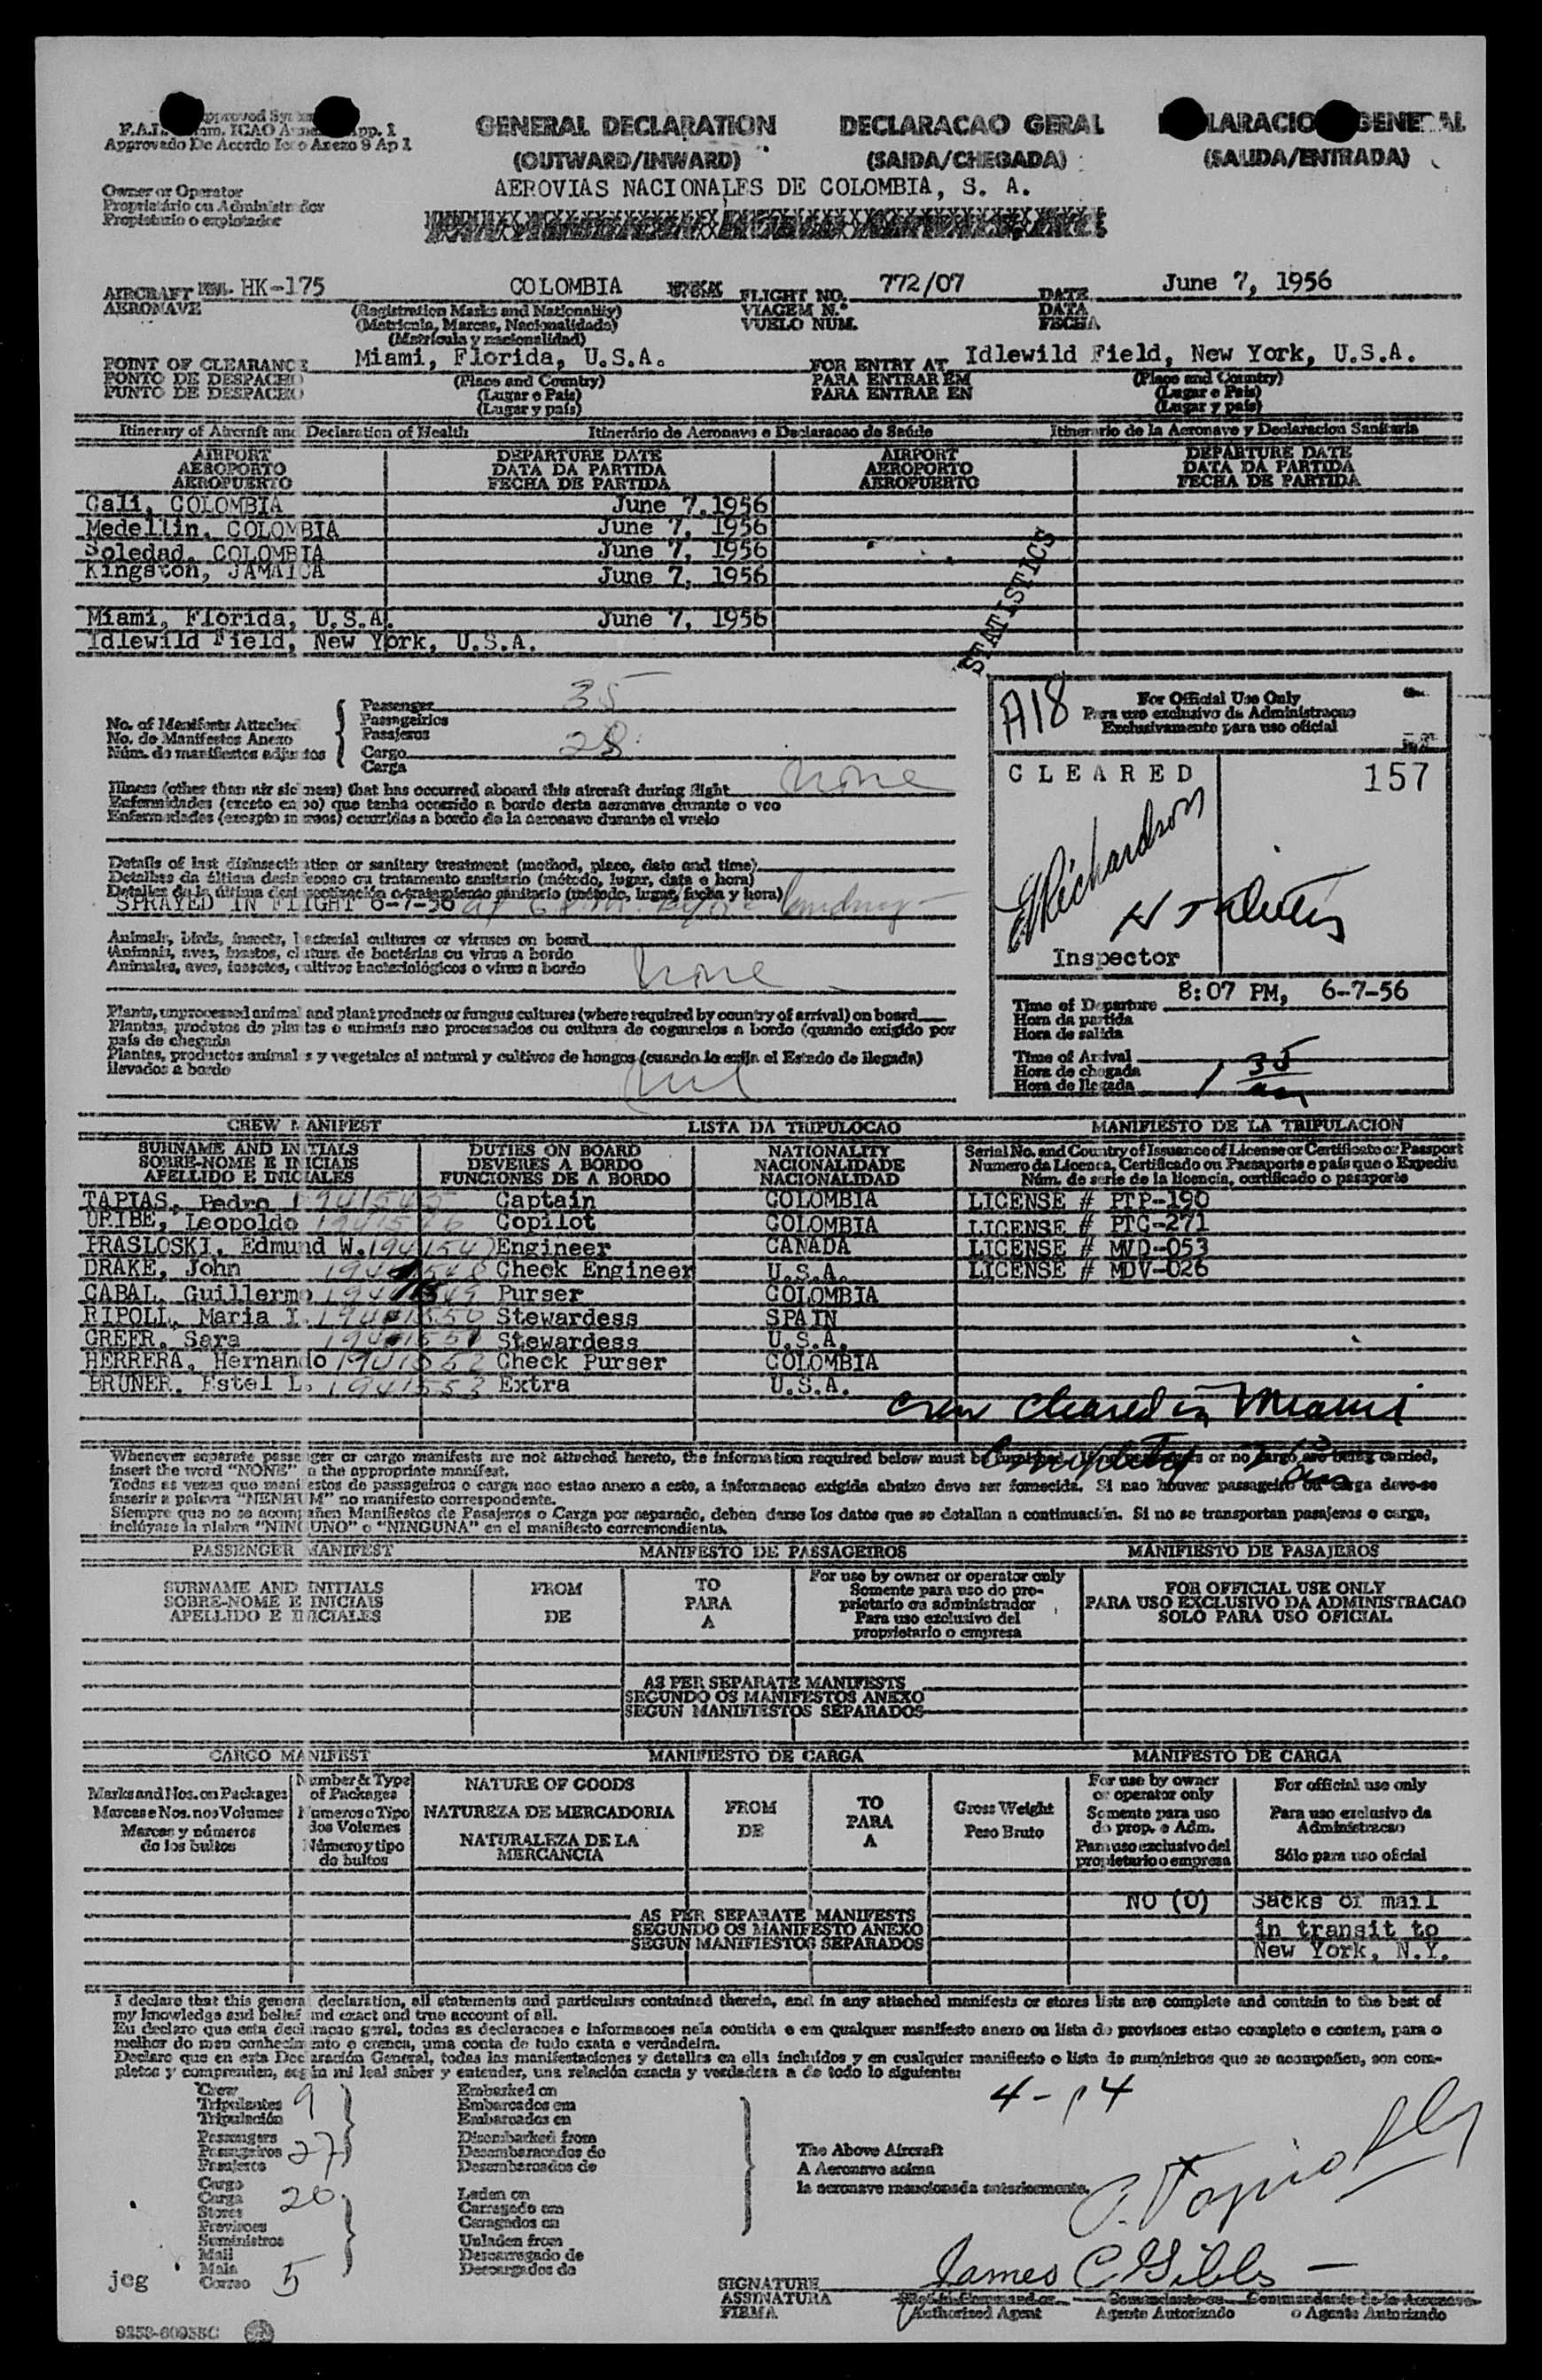 F.A.L.
App. 1
Approvado De Acordo Icao Anexo 9 Ap 1
GENERAL DECLARATION DECLARACAO GERAL GENERAL
(OUTWARD/INWARD) (SAIDA/CHEGADA) (SALIDA/ENTRADA)
AEROVIAS NACIONALES DE COLOMBIA, S. A.
Owner or Operator
Proprietário ou Administrador
Propietario o explotador
AIRCRAFT HK-175 COLOMBIA FLIGHT NO. 772/07 DATE June 7, 1956
AERONAVE (Registration Marks and Nationality) VIAGEM N.° DATA
(Matricula, Marcas, Nacionalidade) VUELO NUM. FECHA
(Matrícula y nacionalidad)
POINT OF CLEARANCE Miami, Florida, U.S.A. FOR ENTRY AT Idlewild Field, New York, U.S.A.
PONTO DE DESPACHO (Place and Country) PARA ENTRAR EM (Place and Country)
PUNTO DE DESPACHO (Lugar e Pais) PARA ENTRAR EN (Lugar e Pais)
(Lugar y país) (Lugar y país)
Itinerary of Aircraft and Declaration of Health Itinerário de Aeronave e Declaracao de Saúde Itinerario de la Aeronave y Declaracion Sanitaria
AIRPORT DEPARTURE DATE AIRPORT DEPARTURE DATE
AEROPORTO DATA DA PARTIDA AEROPORTO DATA DA PARTIDA
AEROPUERTO FECHA DE PARTIDA AEROPUERTO FECHA DE PARTIDA
Cali, COLOMBIA June 7, 1956
Medellin, COLOMBIA June 7, 1956
Soledad, COLOMBIA June 7, 1956
Kingston, JAMAICA June 7, 1956
Miami, Florida, U.S.A. June 7, 1956
Idlewild Field, New York, U.S.A.
STATISTICS
No. of Manifests Attached Passenger 35
No. de Manifestos Anexo Passageiros
Núm. de manifiestos adjuntos Pasajeros
Cargo 28
Carga
Illness (other than air sickness) that has occurred aboard this aircraft during flight none
Enfermidades (exceto enjoo) que tenha ocorrido a bordo desta aeronave durante o voo
Enfermedades (excepto mareos) ocurridas a bordo de la aeronave durante el vuelo
Details of last disinsectization or sanitary treatment (method, place, date and time)
Detalhes da última desinfeccao ou tratamento sanitario (método, lugar, data e hora)
Detalles de la última desinsectización o tratamiento sanitario (método, lugar, fecha y hora)
SPRAYED IN FLIGHT 6-7-56 landing
Animals, birds, insects, bacterial cultures or viruses on board
Animais, aves, insetos, cultura de bactérias ou virus a bordo
Animales, aves, insectos, cultivos bacteriológicos o virus a bordo
none
Plants, unprocessed animal and plant products or fungus cultures (where required by country of arrival) on board
Plantas, produtos de plantas e animais nao processados ou cultura de cogumelos a bordo (quando exigido por
país de chegada
Plantas, productos animales y vegetales al natural y cultivos de hongos (cuando lo exija el Estado de llegada)
llevados a bordo
nil
A18
For Official Use Only
Para uso exclusivo da Administracao
Exclusivamente para uso oficial
CLEARED 157
Richardson
Inspector
Time of Departure 8:07 PM, 6-7-56
Hora da partida
Hora de salida
Time of Arrival 1 35
Hora de chegada
Hora de llegada
CREW MANIFEST LISTA DA TRIPULOCAO MANIFIESTO DE LA TRIPULACION
SURNAME AND INITIALS DUTIES ON BOARD NATIONALITY Serial No. and Country of Issuance of License or Certificate or Passport
SOBRE-NOME E INICIAIS DEVERES A BORDO NACIONALIDADE Numero da Licenca, Certificado ou Passaporte e pais que o Expediu
APELLIDO E INICIALES FUNCIONES DE A BORDO NACIONALIDAD Núm. de serie de la licencia, certificado o pasaporte
TAPIAS, Pedro 1941545 Captain COLOMBIA LICENSE # PTP-190
URIBE, Leopoldo 1941546 Copilot COLOMBIA LICENSE # PTC-271
PRASLOSKI, Edmund W. 1941547 Engineer CANADA LICENSE # MVD-053
DRAKE, John 1941548 Check Engineer U.S.A. LICENSE # MDV-026
CABAL, Guillermo 1941549 Purser COLOMBIA
RIPOLL, Maria Y. 1941550 Stewardess SPAIN
GREER, Sara 1941551 Stewardess U.S.A.
HERRERA, Hernando 1941552 Check Purser COLOMBIA
BRUNER, Estel L. 1941553 Extra U.S.A.
Crew cleared in Miami
Whenever separate passenger or cargo manifests are not attached hereto, the information required below must be furnished. or no cargo are being carried,
insert the word "NONE" in the appropriate manifest.
Todas as vezes que manifestos de passageiros e carga nao estao anexo a este, a informacao exigida abaixo deve ser fornecida. Si nao houver passageiro ou carga deve-se
inserir a palavra "NENHUM" no manifesto correspondente.
Siempre que no se acompañen Manifiestos de Pasajeros o Carga por separado, deben darse los datos que se detallan a continuación. Si no se transportan pasajeros o carga,
inclúyase la plabra "NINGUNO" o "NINGUNA" en el manifiesto correspondiente.
PASSENGER MANIFEST MANIFESTO DE PASSAGEIROS MANIFIESTO DE PASAJEROS
SURNAME AND INITIALS FROM TO For use by owner or operator only FOR OFFICIAL USE ONLY
SOBRE-NOME E INICIAIS DE PARA Somente para uso do proprietario ou administrador PARA USO EXCLUSIVO DA ADMINISTRACAO
APELLIDO E INICIALES A Para uso exclusivo del propietario o empresa SOLO PARA USO OFICIAL
AS PER SEPARATE MANIFESTS
SEGUNDO OS MANIFESTOS ANEXO
SEGUN MANIFIESTOS SEPARADOS
CARGO MANIFEST MANIFIESTO DE CARGA MANIFESTO DE CARGA
Marks and Nos. on Packages Number & Type of Packages NATURE OF GOODS FROM TO Gross Weight For use by owner or operator only For official use only
Marcas e Nos. nos Volumes Numeros e Tipo dos Volumes NATUREZA DE MERCADORIA DE PARA Peso Bruto Somente para uso do prop. e Adm. Para uso exclusivo da Administracao
Marcas y números de los bultos Número y tipo de bultos NATURALEZA DE LA MERCANCIA A Para uso exclusivo del propietario o empresa Sólo para uso oficial
NO (0) Sacks of mail
in transit to
New York, N.Y.
AS PER SEPARATE MANIFESTS
SEGUNDO OS MANIFESTO ANEXO
SEGUN MANIFIESTOS SEPARADOS
I declare that this general declaration, all statements and particulars contained therein, and in any attached manifests or stores lists are complete and contain to the best of
my knowledge and belief and exact and true account of all.
Eu declaro que esta declaracao geral, todas as declaracoes e informacoes nela contida e em qualquer manifesto anexo ou lista de provisoes estao completo e contem, para o
melhor do meu conhecimento e crenca, uma conta de tudo exata e verdadeira.
Declaro que en esta Declaración General, todas las manifestaciones y detalles en ella incluidos y en cualquier manifiesto o lista de suministros que se acompañen, son com-
pletos y comprenden, según mi leal saber y entender, una relación exacta y verdadera a de todo lo siguiente:
Crew 9 Embarked on
Tripulantes Embarcados em
Tripulación Embarcados en
Passengers 27 Disembarked from
Passageiros Desembaracados do
Pasajeros Desembarcados de
Cargo 20 Laden on
Carga Carregado em
Stores Cargados en
Provisoes Unladen from
Suministros Descarregado de
Mail 5 Descargados de
Mala
Correo
4-14
The Above Aircraft
A Aeronave acima
la aeronave mencionada anteriormente.
James C Gibbs
SIGNATURE
ASSINATURA
FIRMA
Authorized Agent Agente Autorizado o Agente Autorizado
jeg